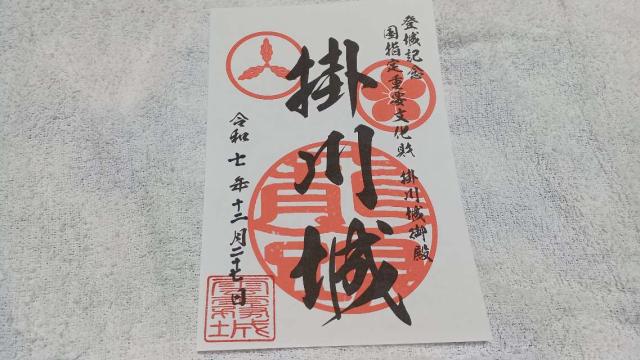 登城記念
国指定重要文化財 掛川城御殿
掛川城
令和七年十二月二十七日